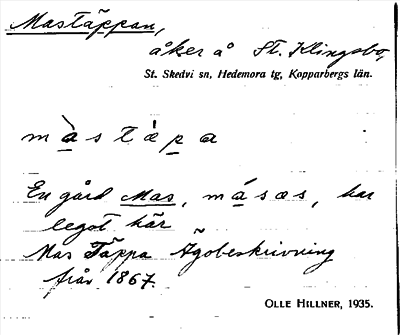 Mastäppan,
åker å St. Klingsbo,
St. Skedvi sn, Hedemora tg, Kopparbergs län.
màstèpa
En gård Mas, másæs, har
legat här
Mas Täppa Ägobeskrivning
från 1867.
OLLE HILLNER, 1935.